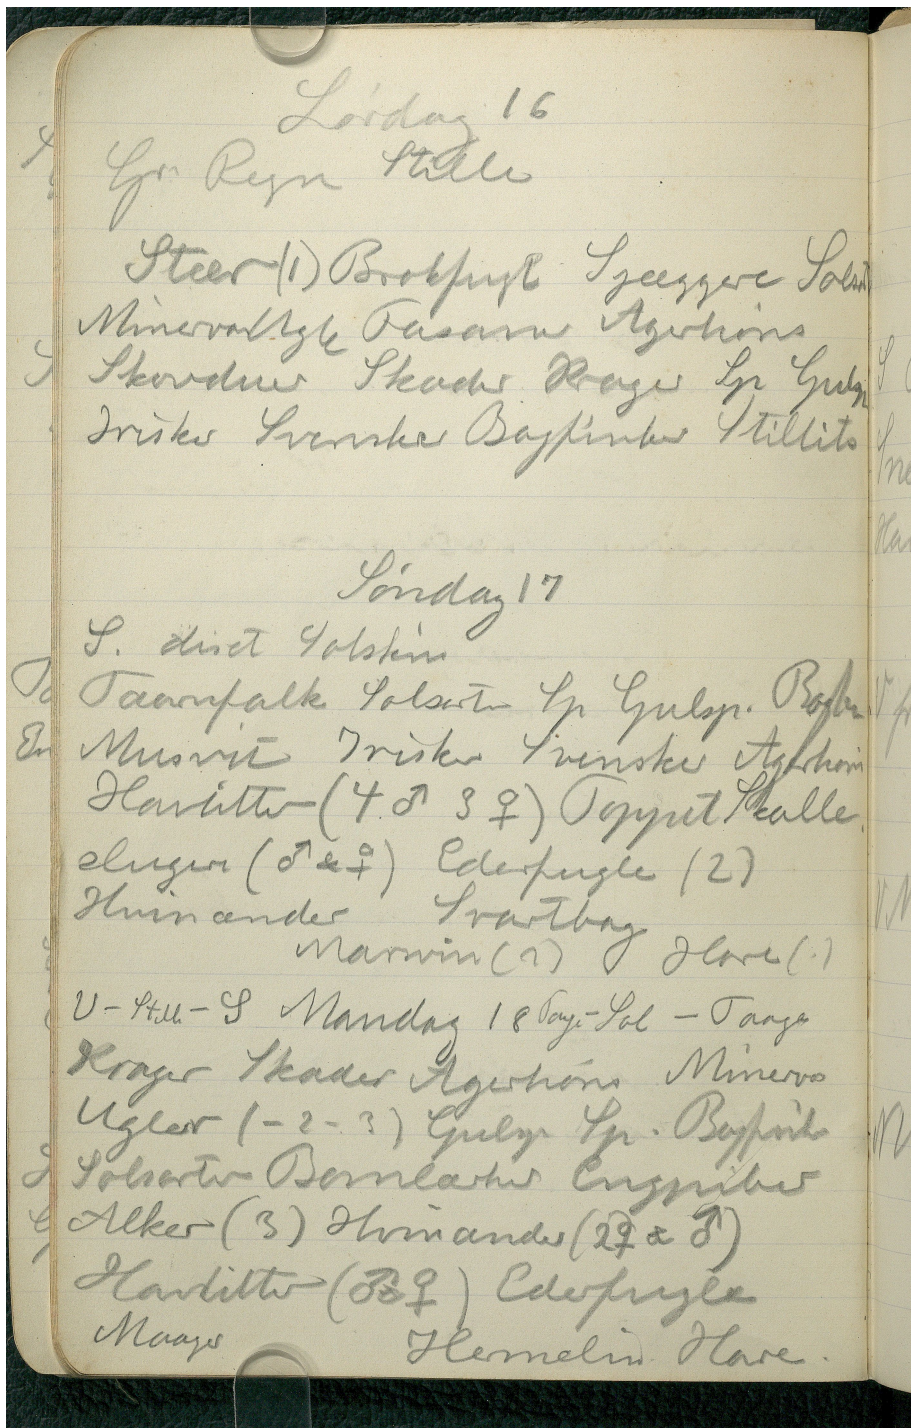 Lördag 16
Gr. Regn Stille
Stær (1) Brokfugl Sjæggere Solsort
Minervaugle Fasaner Agerhöns
Skovduer Skader Krager Sp Gulsp
Irisker Svenskere Bogfinker Stillits
Söndag 17
S. diset Solskin
Taarnfalk Solsorter Sp Gulsp. Bogfin
Musvit Irisker Svensker Agerhöns
Havlitter (4 ♂ 3 ♀) Toppet Skalle
sluger (♂ & ♀) Ederfugle (2)
Hvinænder Svartbag
Marsvin (1) Hare (1)
V - Still - S Mandag 18 Taage - Sol - Taage
Krager Skader Agerhöns Minerva
Ugler (- 2 - 3) Gulsp Sp. Bogfink
Solsorter Bomlærker Engpiber
Alker (3) Hvinænder (2♀ & ♂)
Havlitter (♂3♀) Ederfugle
Maager Hermelin Hare.